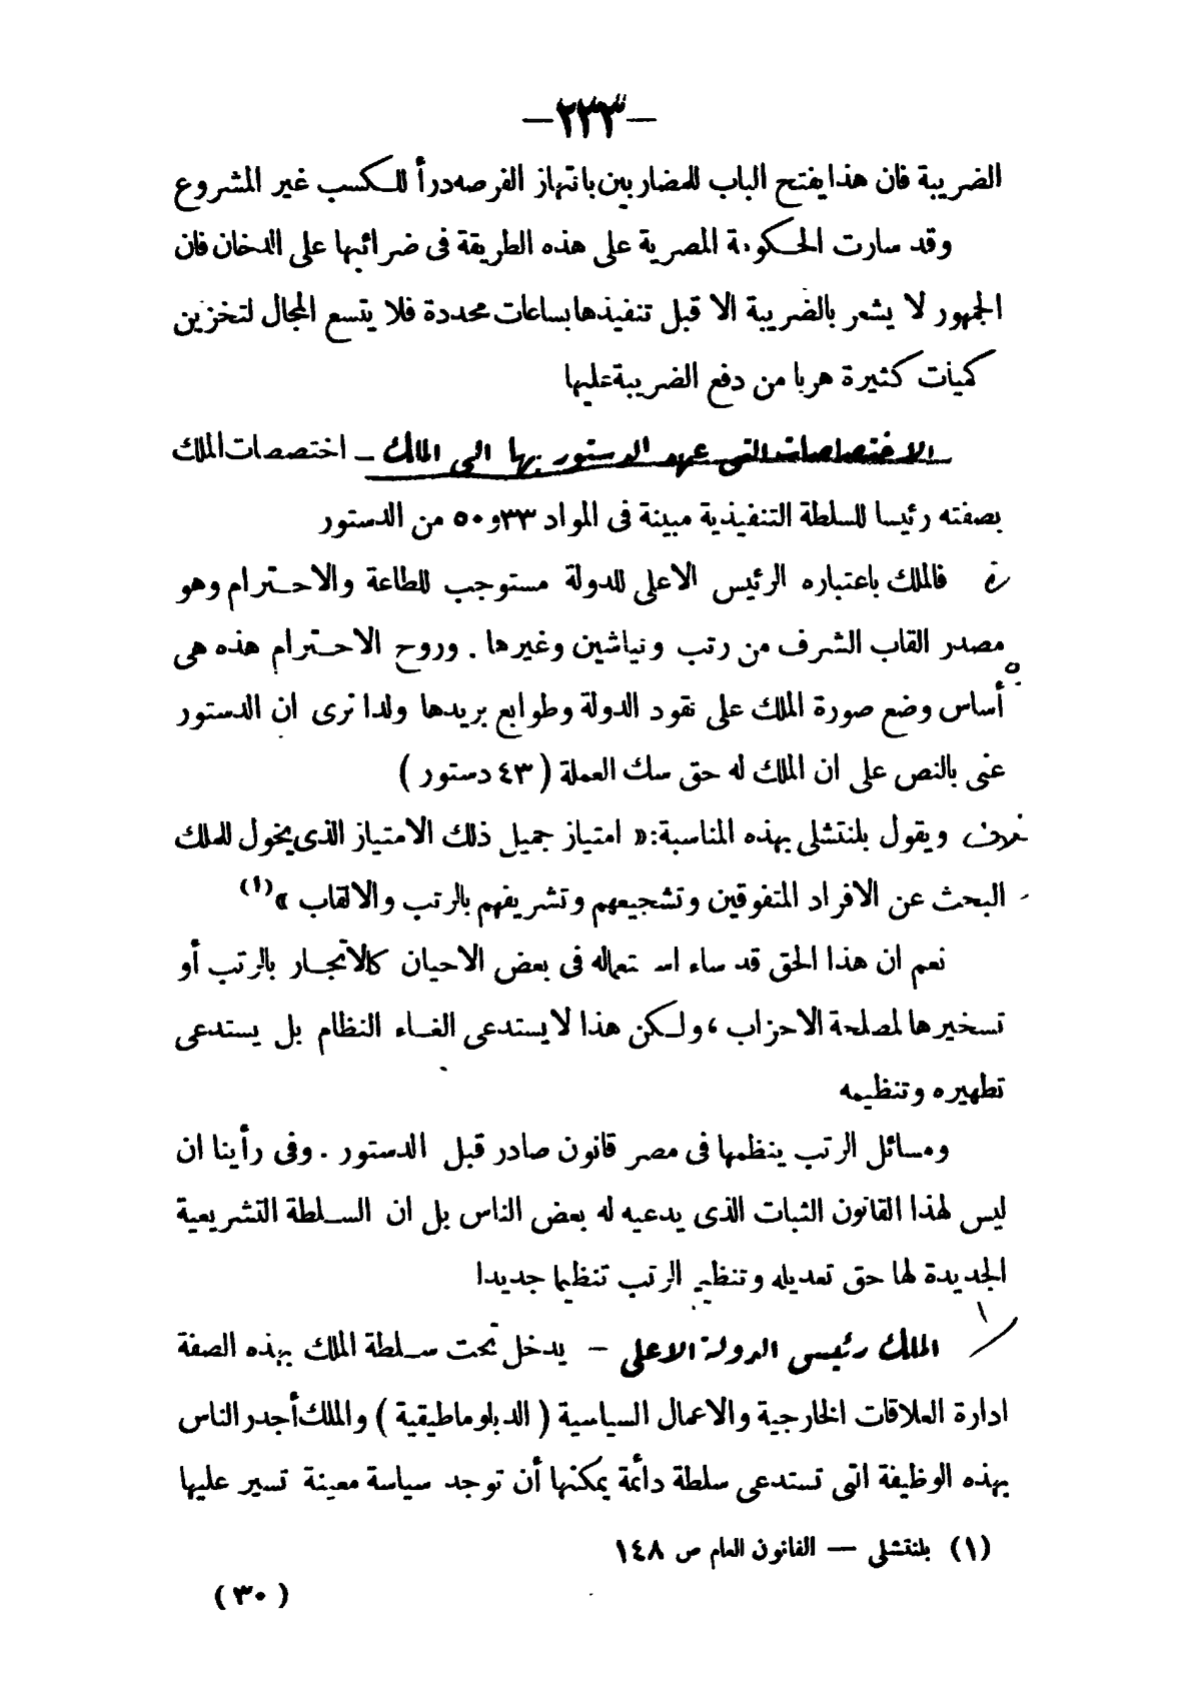 —٢٣٣—
الضريبة فان هذا يفتح الباب للمضاربين بانتهاز الفرصه درأ للكسب غير المشروع
وقد سارت الحكومة المصرية على هذه الطريقة فى ضرائبها على الدخان فان
الجمهور لا يشعر بالضريبة الا قبل تنفيذها بساعات محددة فلا يتسع المجال لتخزين
كميات كثيرة هربا من دفع الضريبة عليها
الاختصاصات التى عهد الدستور بها الى الملك — اختصصات الملك
بصفته رئيسا للسلطة التنفيذية مبينة فى المواد ٣٣ و٥٠ من الدستور
فالملك باعتباره الرئيس الاعلى للدولة مستوجب للطاعة والاحترام وهو
مصدر القاب الشرف من رتب ونياشين وغيرها . وروح الاحترام هذه هى
أساس وضع صورة الملك على نقود الدولة وطوابع بريدها ولذا نرى ان الدستور
عنى بالنص على ان الملك له حق سك العملة ( ٤٣ دستور )
ويقول بلنتشلى بهذه المناسبة:« امتياز جميل ذلك الامتياز الذى يخول للملك
البحث عن الافراد المتفوقين وتشجيعهم وتشريفهم بالرتب والالقاب »(١)
نعم ان هذا الحق قد ساء استعماله فى بعض الاحيان كالاتجار بالرتب أو
تسخيرها لمصلحة الاحزاب ، ولكن هذا لا يستدعى الغاء النظام بل يستدعى
تطهيره وتنظيمه
ومسائل الرتب ينظمها فى مصر قانون صادر قبل الدستور . وفى رأينا ان
ليس لهذا القانون الثبات الذى يدعيه له بعض الناس بل ان السلطة التشريعية
الجديدة لها حق تعديله وتنظيم الرتب تنظيما جديدا
الملك رئيس الدولة الاعلى — يدخل تحت سلطة الملك بهذه الصفة
ادارة العلاقات الخارجية والاعمال السياسية ( الدبلوماطيقية ) والملك أجدر الناس
بهذه الوظيفة التى تستدعى سلطة دائمة يمكنها أن توجد سياسة معينة تسير عليها
(١) بلنتشلى — القانون العام ص ١٤٨
( ٣٠ )